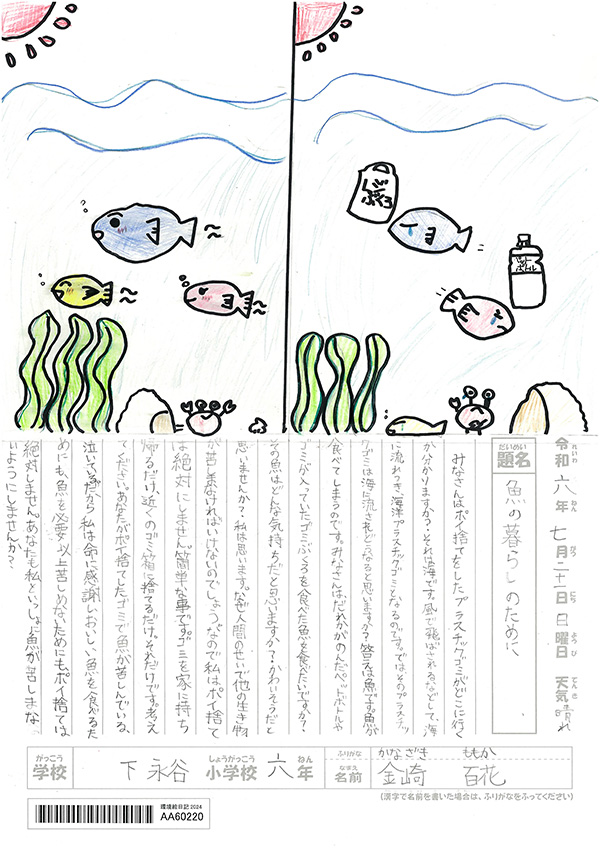 レジ
ぶくろ
ペット
ボトル
令和六年七月二十一日日曜日 天気 晴れ
れいわ ねん がつ にち よう び てんき
だいめい
題名
魚の暮らしのために
みなさんはポイ捨てをしたプラスチックゴミがどこに行く
かわかりますか?それは海です。風で飛ばされるなどして、海
に流れつき、海洋プラスチックゴミとなるのです。ではそのプラスチッ
クゴミは海に流されどうなると思いますか?答えは魚です。魚が
食べてしまうのです。みなさんは、だれかがのんだペットボトルや
ゴミが入っていたゴミぶくろを食べた魚を食べたいですか?
その魚はどんな気持ちだと思いますか?かわいそうだと
思いませんか?私は思います。なぜ人間のせいで他の生き物
が苦しまなければいけないのでしょう。なので私はポイ捨て
は絶対にしません。簡単な事です。ゴミを家に持ち
帰るだけ、近くのゴミ箱に捨てるだけ。それだけです。考え
てください。あなたがポイ捨てしたゴミで魚が苦しんでいる、
泣いている。だから私は命に感謝しおいしい魚を食べるた
めにも、魚を必要以上苦しめないためにもポイ捨ては
絶対しません。あなたも私といっしょに魚が苦しまな
いようにしませんか?
がっこう しょうがっこう ねん ふりがな かなざき ももか
学校 下永谷 小学校 六年 なまえ 名前 金崎 百花
(漢字で名前を書いた場合は、ふりがなをふってください)
環境絵日記2024
AA60220